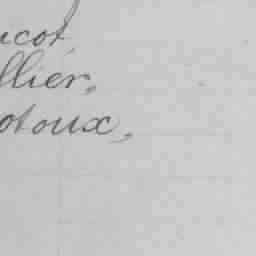 ucot
llier,
otoux,